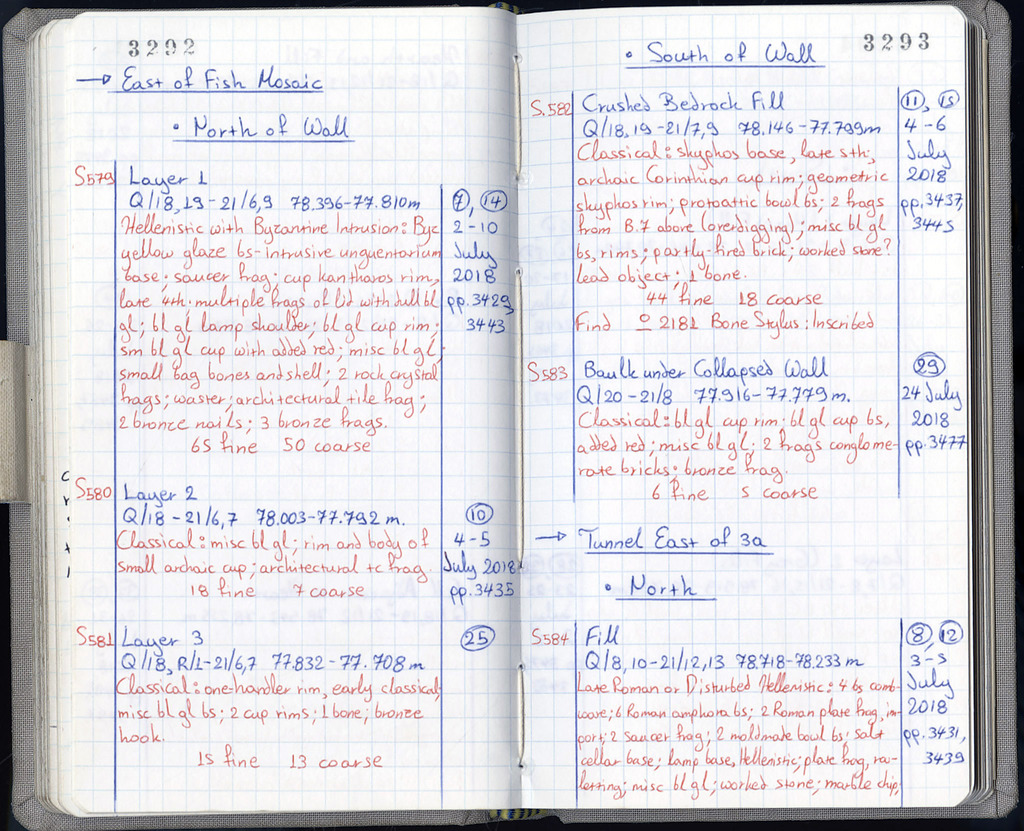 3292
→ East of Fish Mosaic
• North of Wall
S579 Layer 1
Q/18,19-21/6,9 78.396-77.810m
7, 14
Hellenistic with Byzantine Intrusion: Byz
2-10
yellow glaze bs-intrusive unguentarium
July
base; saucer frag; cup kantharos rim,
2018
late 4th; multiple frags of lid with dull bl
pp. 3429,
gl; bl gl lamp shoulder; bl gl cup rim;
3443
sm bl gl cup with added red; misc bl gl,
small bag bones and shell; 2 rock crystal
frags; waster; architectural tile frag;
2 bronze nails; 3 bronze frags.
65 fine 50 coarse
S580 Layer 2
Q/18-21/6,7 78.003-77.792 m.
10
Classical: misc bl gl; rim and body of
4-5
small archaic cup; architectural tc frag.
July 2018
18 fine 7 coarse
pp. 3435
S581 Layer 3
25
Q/18, R/1-21/6,7 77.832-77.708 m
Classical: one-handler rim, early classical;
misc bl gl bs; 2 cup rims; 1 bone; bronze
hook.
15 fine 13 coarse
3293
• South of Wall
S.582 Crushed Bedrock Fill
11, 15
Q/18,19-21/7,9 78.146-77.799m
4-6
Classical: skyphos base, late 5th;
July
archaic Corinthian cup rim; geometric
2018
skyphos rim; protoattic bowl bs; 2 frags
pp. 3437,
from B.7 above (overdigging); misc bl gl
3445
bs, rims; partly-fired brick; worked stone?
lead object; 1 bone.
44 fine 18 coarse
Find 2181 Bone Stylus: Inscribed
S583 Baulk under Collapsed Wall
29
Q/20-21/8 77.916-77.779 m.
24 July
Classical: bl gl cup rim; bl gl cup bs,
2018
added red; misc bl gl; 2 frags conglome-
pp. 3477
rate bricks; bronze frag.
6 fine 5 coarse
→ Tunnel East of 3a
• North
S584 Fill
8, 12
Q/8,10-21/12,13 78.718-78.233 m
3-5
Late Roman or Disturbed Hellenistic: 4 bs comb-
July
ware; 6 Roman amphora bs; 2 Roman plate frag, im-
2018
port; 2 saucer frag; 2 moldmade bowl bs; salt
pp. 3431,
cellar base; lamp base, Hellenistic; plate frag, rou-
3439
letting; misc bl gl; worked stone; marble chip;